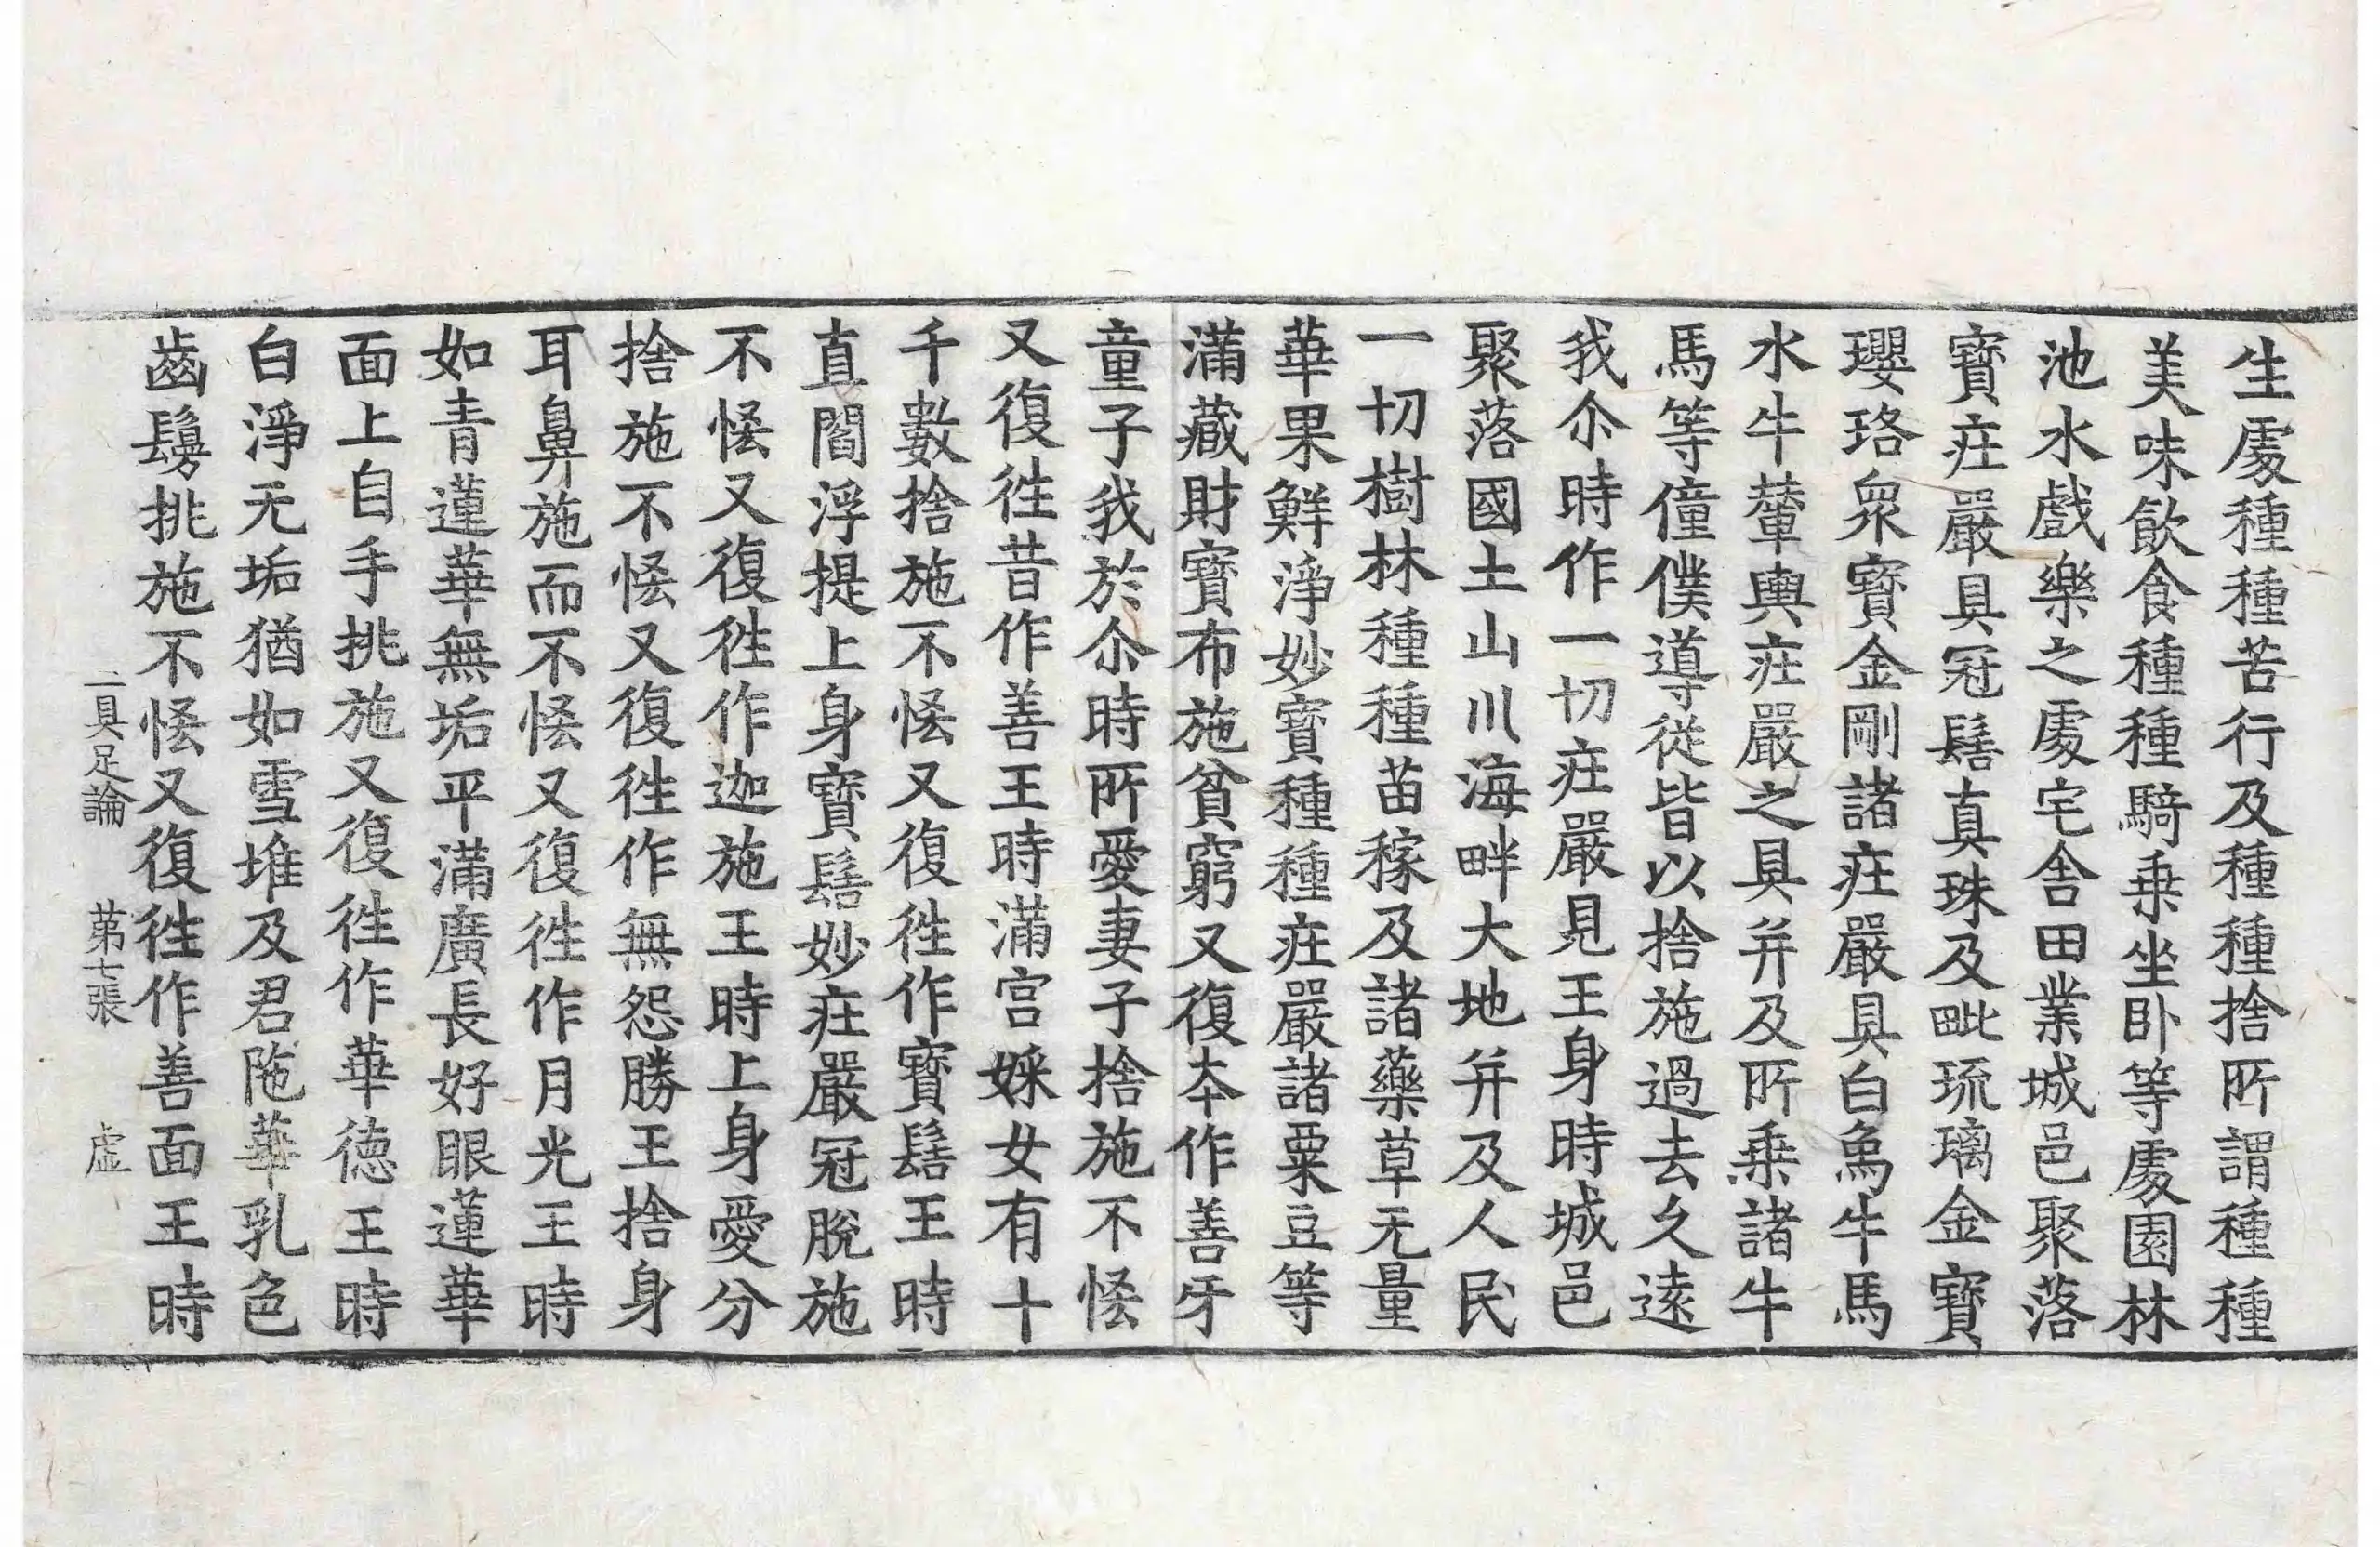 生處種種苦行及種種捨所謂種種
美味飲食種種騎乗坐卧等處園林
池水戲樂之處宅舍田業城邑聚落
寳莊嚴具冠髻真珠及毗琉璃金寳
瓔珞衆寳金剛諸莊嚴具白象牛馬
水牛輦輿莊嚴之具并及所乗諸牛
馬等僮僕導從皆以捨施過去久遠
我尒時作一切莊嚴見王身時城邑
聚落國土山川海畔大地并及人民
一切樹林種種苗稼及諸藥草无量
華果鮮淨妙寳種種莊嚴諸粟豆等
滿藏財寳布施貧窮又復夲作善牙
童子我於尒時所愛妻子捨施不悋
又復徃昔作善王時滿宮婇女有十
千數捨施不悋又復徃作寳髻王時
直閻浮提上身寳髻妙莊嚴冠脫施
不悋又復徃作迦施王時上身愛分
捨施不悋又復徃作無怨勝王捨身
耳鼻施而不悋又復徃作月光王時
如青蓮華無垢平滿廣長好眼蓮華
面上自手挑施又復徃作華德王時
白淨无垢猶如雪堆及君陁華乳色
齒鬘挑施不悋又復徃作善面王時
二具足論 苐七張 虛